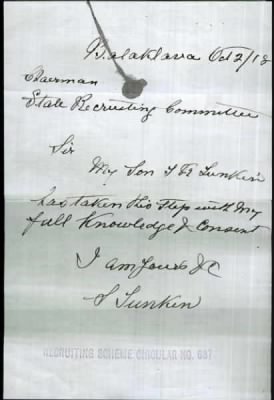 Balaklava Oct 2/18
Chairman
State Recruiting Committee
Sir
My Son T W Lunkin
has taken this step with my
full Knowledge & Consent
I am yours &c
S Lunkin
RECRUITING SCHEME CIRCULAR NO. 687